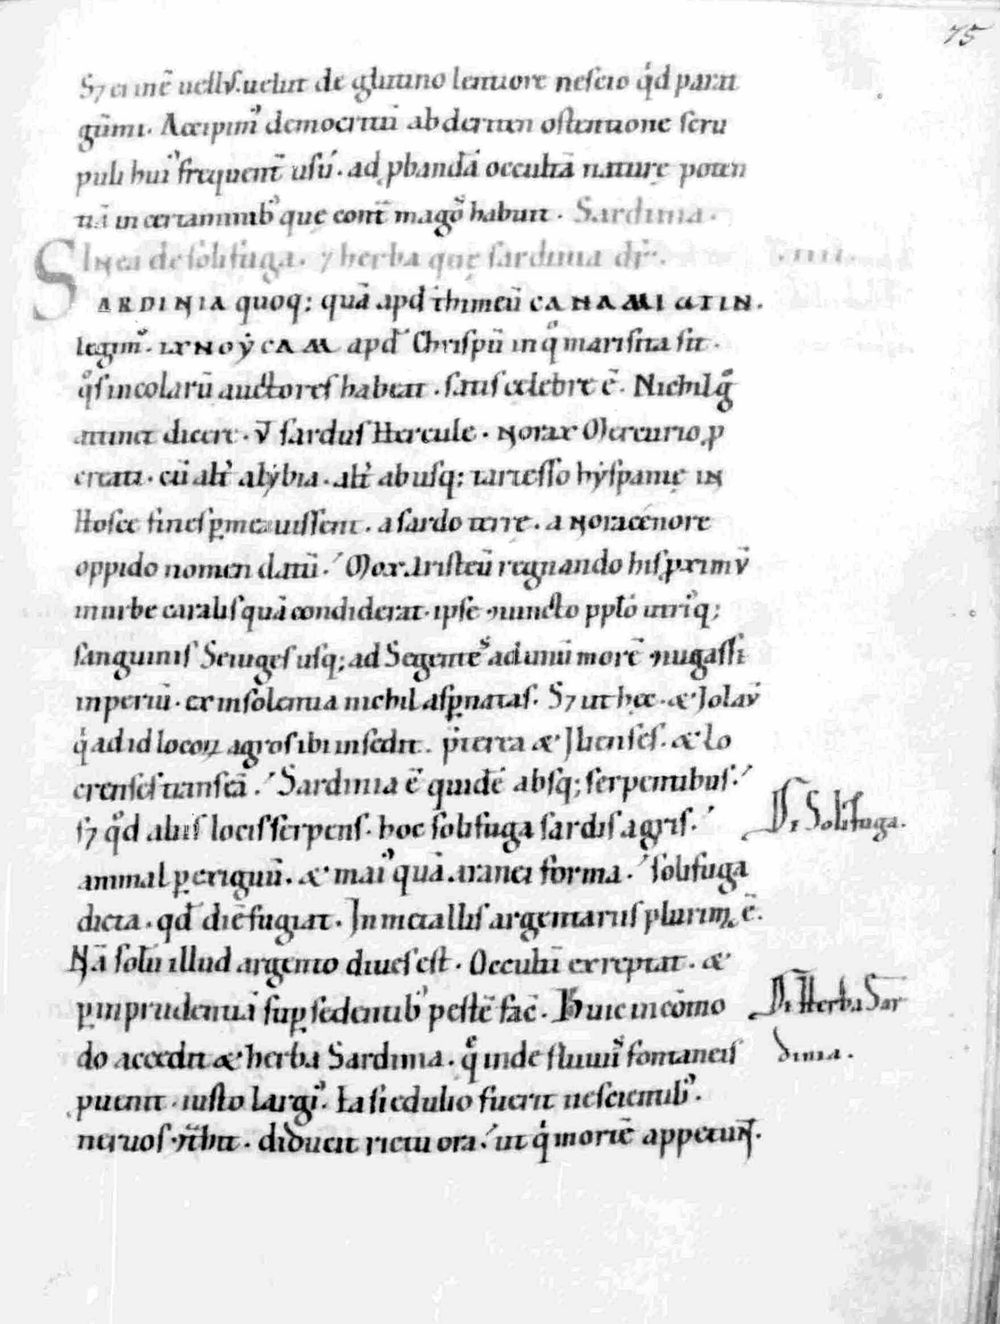 75
S⁊ ei inē uellꝰ. uelut de glutino lentuore nescio q̇d parat
gūmi. Accipimꝰ democritū abderiten ostentuone scru
puli huiꝰ frequent̄ usū. ad ꝓbandā occultā naturę poten
tiā in certaminibꝰ que cont̄ magoˢ habuit. Sardinia.
Linea de solifuga. ⁊ herba quę sardinia dr̄. .iiii.
SARDINIA quoq; quā apd thimeū CANAMI GTIN.
legimꝰ. IXNOẏCAM apd̄ Chrispū in q̊ mari sita sit.
q̊s incolarū auctores habeat. satis celebre ē. Nichil g̊
attinet dicere. v̄ sardus Hercule. Norax Mercurio ꝓ
creati. cū alt̄ alẏbia. alt̄ ab usq; tartesso hẏspanię in
Hosce fines ꝑmeauissent. a sardo terrę. a Norace nore
oppido nomen datū. Mox Aristeū regnando his ꝓximū
in urbe caralis quā condiderat. ipse iuncto ppl̄o utriꝰq;
sanguinis Seiuges usq; ad Se gentēˢ ad unū morē iugassɩ
inperiū. ex insolentia nichil asꝑnatas. S⁊ ut hęc. & Jolaū
q̇ ad id locoꝝ agros ibi insedit. p̄terea & Jlienses. & lo
crenses transeā. Sardinia ē quidē absq; serpentibus.
s⁊ q̊d aliis locis serpens. hoc solifuga sardis agris.
animal ꝑexiguū. & maiꝰ quā aranei forma. solifuga
dicta. qd̄ diē fugiat. In metallis argentariis plurimͣ ē.
Nā solū illud argento diues est. Occultī exreptat. &
ꝑ inprudentiā suꝑ sedentibꝰ pestē fac̄. Huic incōmo
do accedit & herba Sardinia. q̊ inde fluuiiˢ fontaneis
puenit. iusto largiꝰ. Ea si edulio fuerit nescientibꝰ.
neruos ɔtͣhit. diducit rictu ora. ut q̇ mortē appetunt̄.
De Solifuga.
De Herba Sar
dinia.